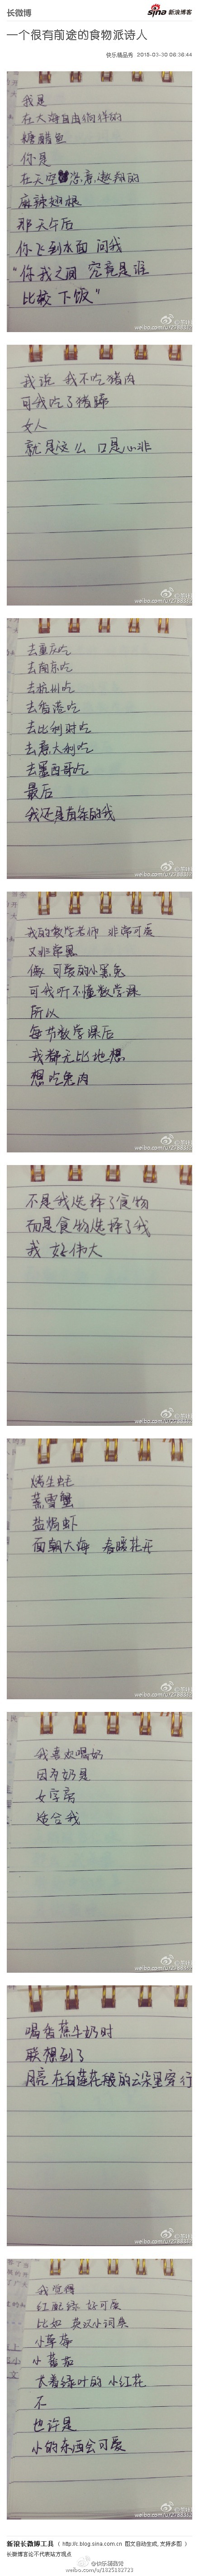 长微博
sina 新浪博客
一个很有前途的食物派诗人
快乐精品秀 2015-03-30 06:36:44
我是
在大海自由徜徉的
糖醋鱼
你是
在天空恣意翱翔的
麻辣翅根
那天午后
你飞到水面 问我
“你我之间 究竟是谁
比较下饭”
weibo.com/u/2788
我说 我不吃猪肉
可我吃了猪蹄
女人
就是这么 口是心非
weibo.com/u/2788
去重庆吃
去南京吃
去杭州吃
去香港吃
去比利时吃
去意大利吃
去墨西哥吃
最后
我还是有条的我
weibo.com/u/2788
我的数学老师 非常可爱
又非常黑
像 可爱的小黑兔
可我听不懂数学课
所以
每节数学课后
我都无比地想
想吃兔肉
weibo.com/u/2788
不是我选择了食物
而是食物选择了我
我 好伟大
weibo.com/u/2788
烤生蚝
蒸雪蟹
盐焗虾
面朝大海 春暖花开
weibo.com/u/2788
我喜欢喝奶
因为奶是
女字旁
适合我
weibo.com/u/2788
喝香蕉牛奶时
联想到了
月亮在白莲花般的云朵里穿行
weibo.com/u/2788
我觉得
红配绿 好可爱
比如 英汉小词典
小草莓
小番茄
大着绿叶的 小红花
不
也许是
小的东西会可爱
weibo.com/u/2788
新浪长微博工具 ( http://c.blog.sina.com.cn 图文自动生成, 支持多图 )
长微博客公不代表站方观点
@快乐精品秀
weibo.com/u/1825182721